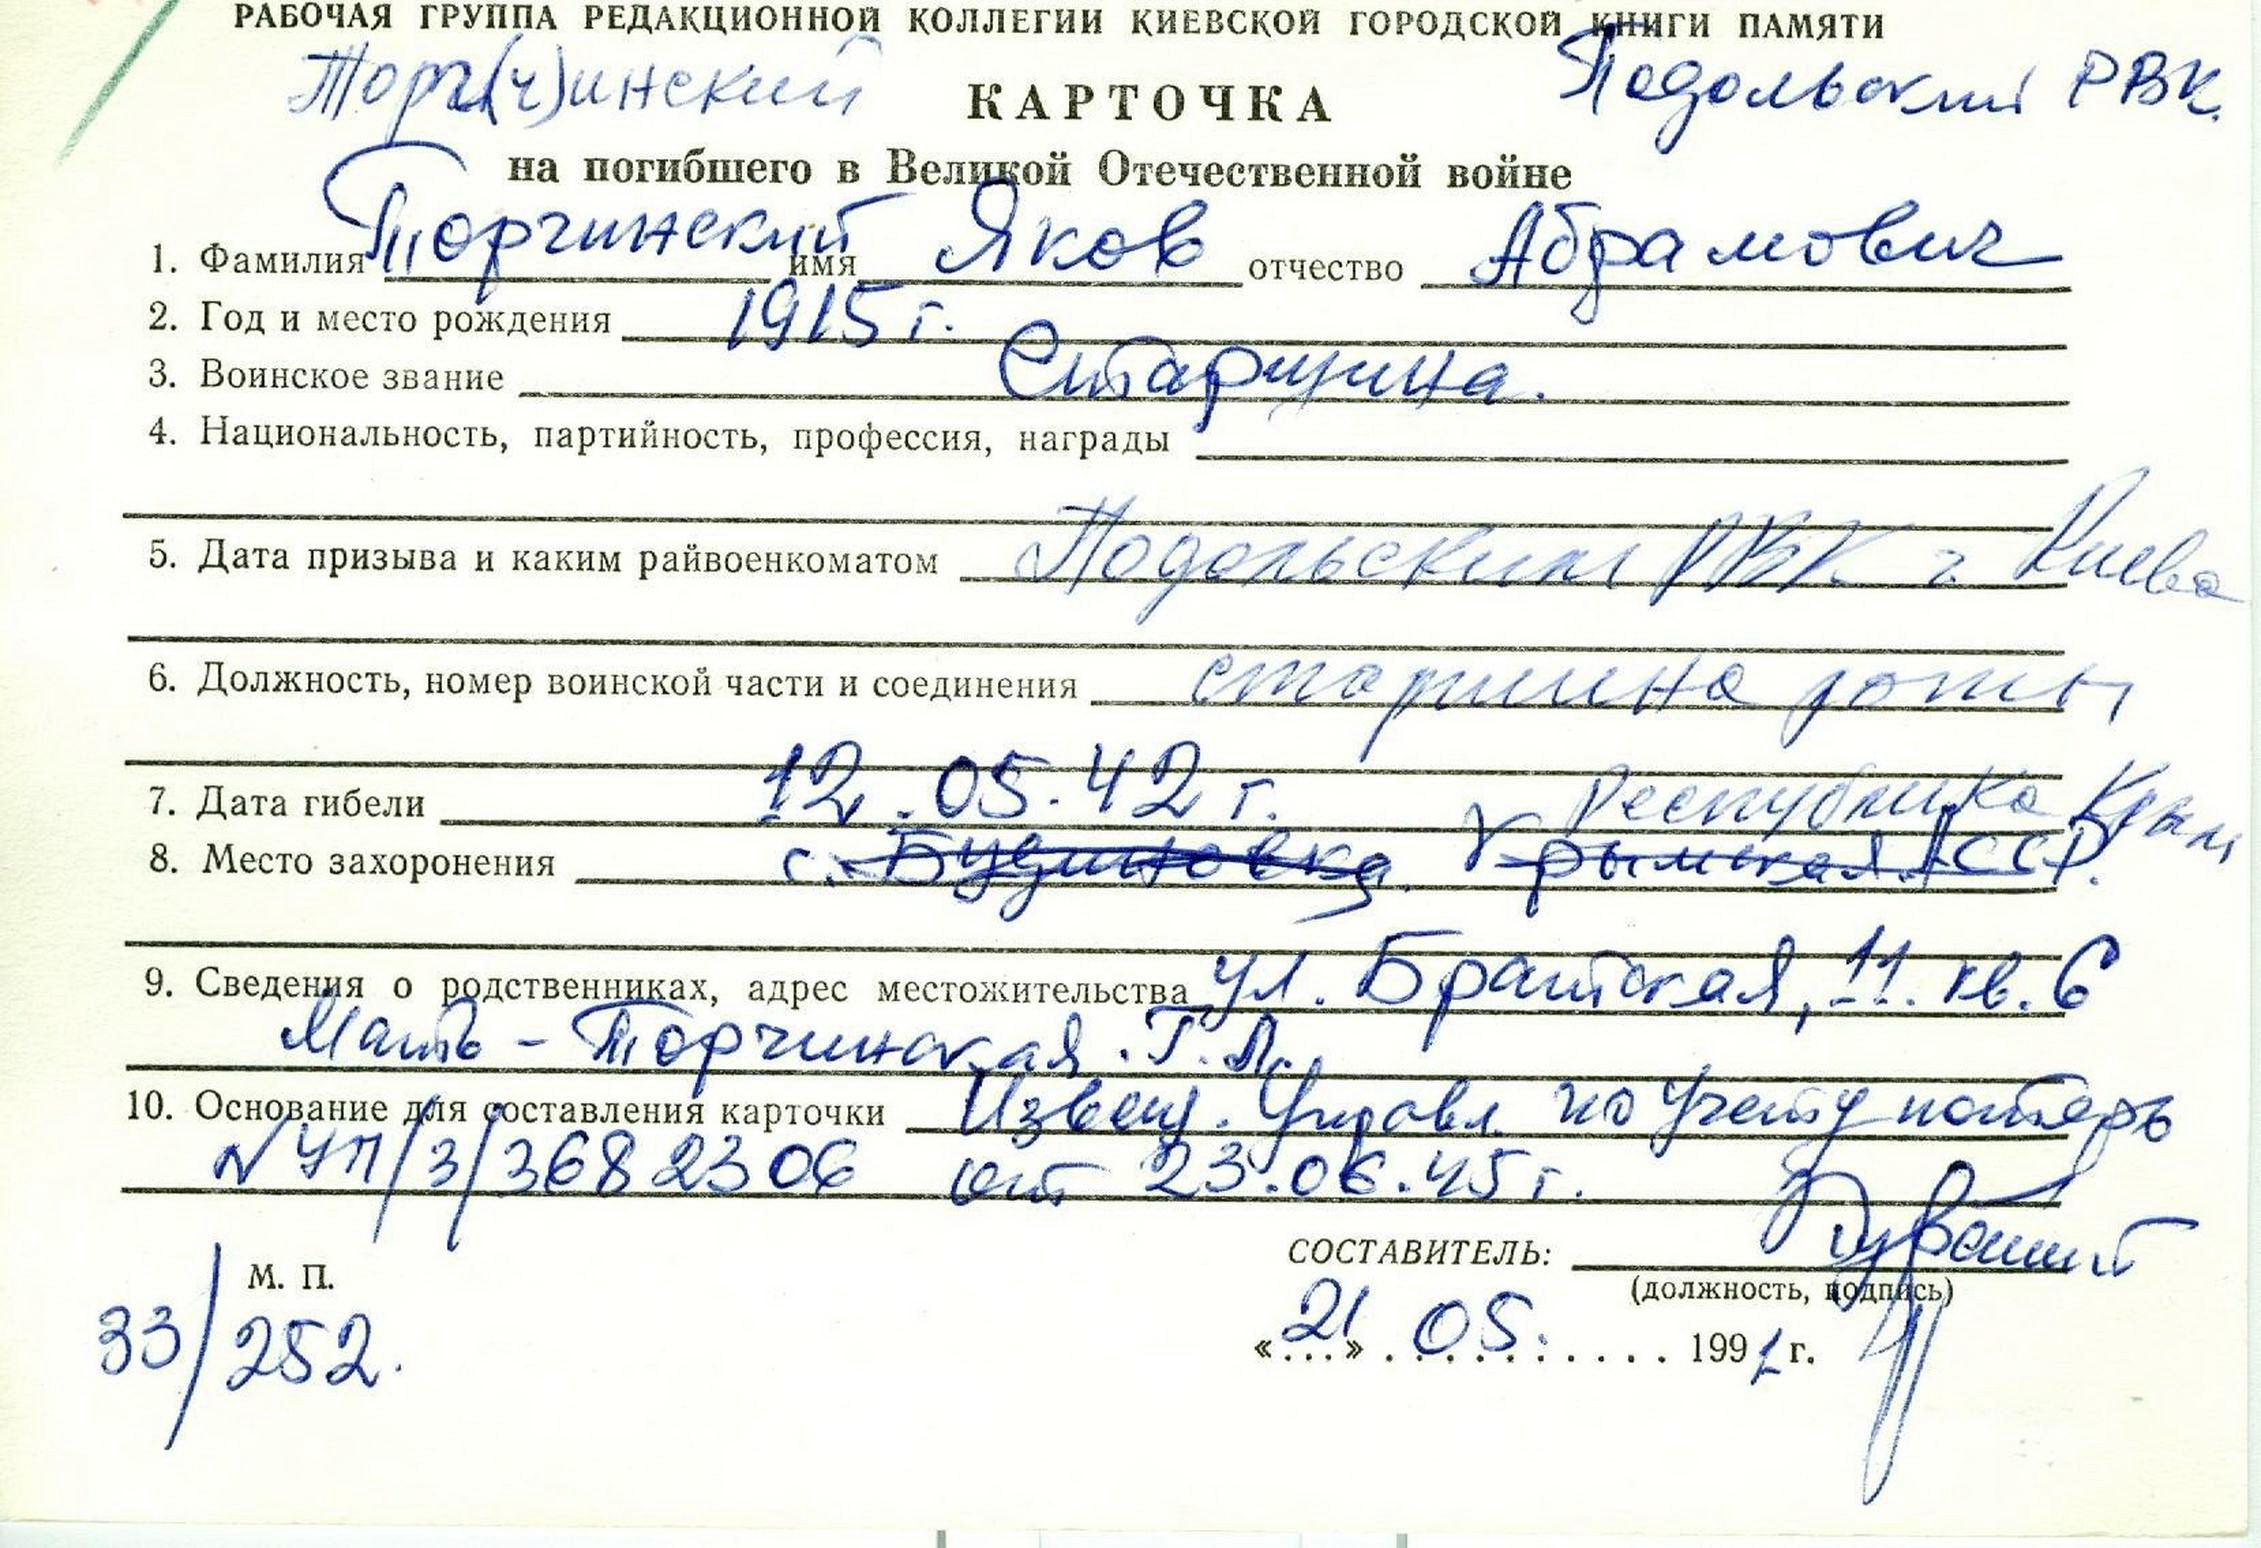 РАБОЧАЯ ГРУППА РЕДАКЦИОННОЙ КОЛЛЕГИИ КИЕВСКОЙ ГОРОДСКОЙ КНИГИ ПАМЯТИ
Торг(ч)инский КАРТОЧКА Подольский РВК.
на погибшего в Великой Отечественной войне
1. Фамилия Торчинский имя Яков отчество Абрамович
2. Год и место рождения 1915 г.
3. Воинское звание Старшина.
4. Национальность, партийность, профессия, награды
5. Дата призыва и каким райвоенкоматом Подольским РВК г. Киева
6. Должность, номер воинской части и соединения старшина роты
7. Дата гибели 12.05.42 г. Республика Крым
8. Место захоронения с. Будиновка. Крымская АССР.
9. Сведения о родственниках, адрес местожительства ул. Братская, 11. кв. 6
Мать - Торчинская Г. Л.
10. Основание для составления карточки Извещ. Управл. по учету потерь
№ УП/3/3682306 от 23.06.45 г.
СОСТАВИТЕЛЬ:
М. П. (должность, подпись)
33/252. «21» 05. 1991 г.